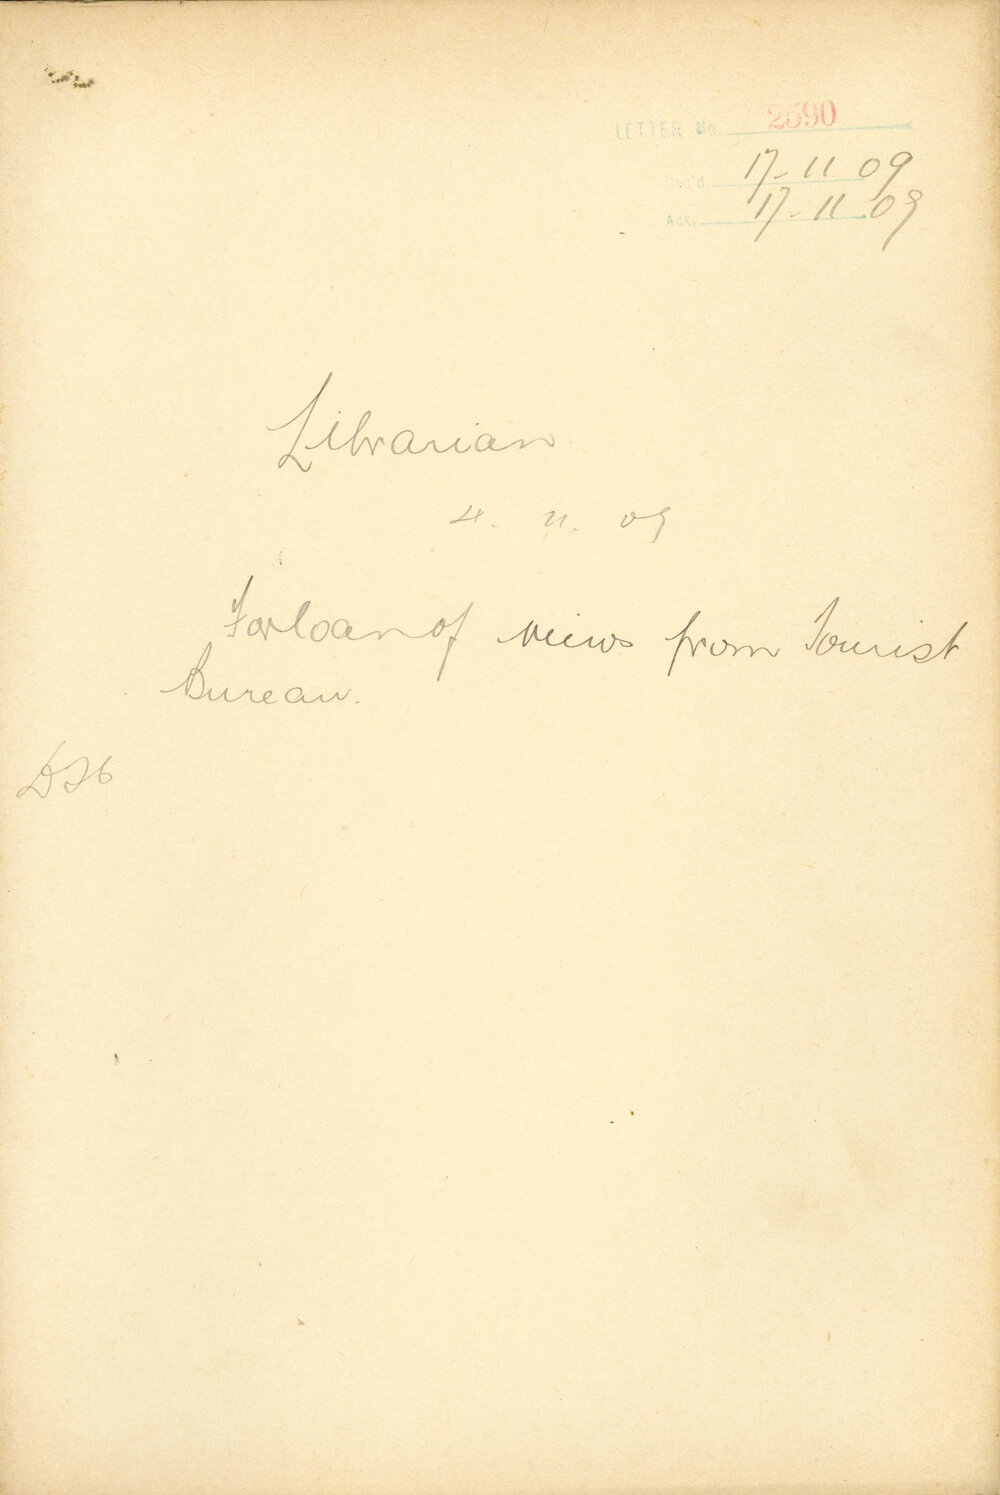 LETTER No. 2590
Rec'd 17-11 09
Ack. 17-11.09
Librarian
4. 11. 09
For loan of views from Tourist
Bureau.